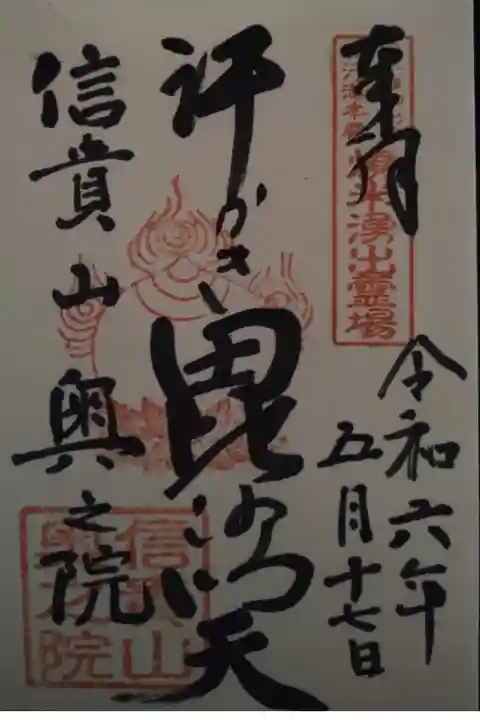 湧出靈場
奉拝
令和六年
五月十七日
汗かき毘沙門天
信貴山奥之院
信貴山
奥之院